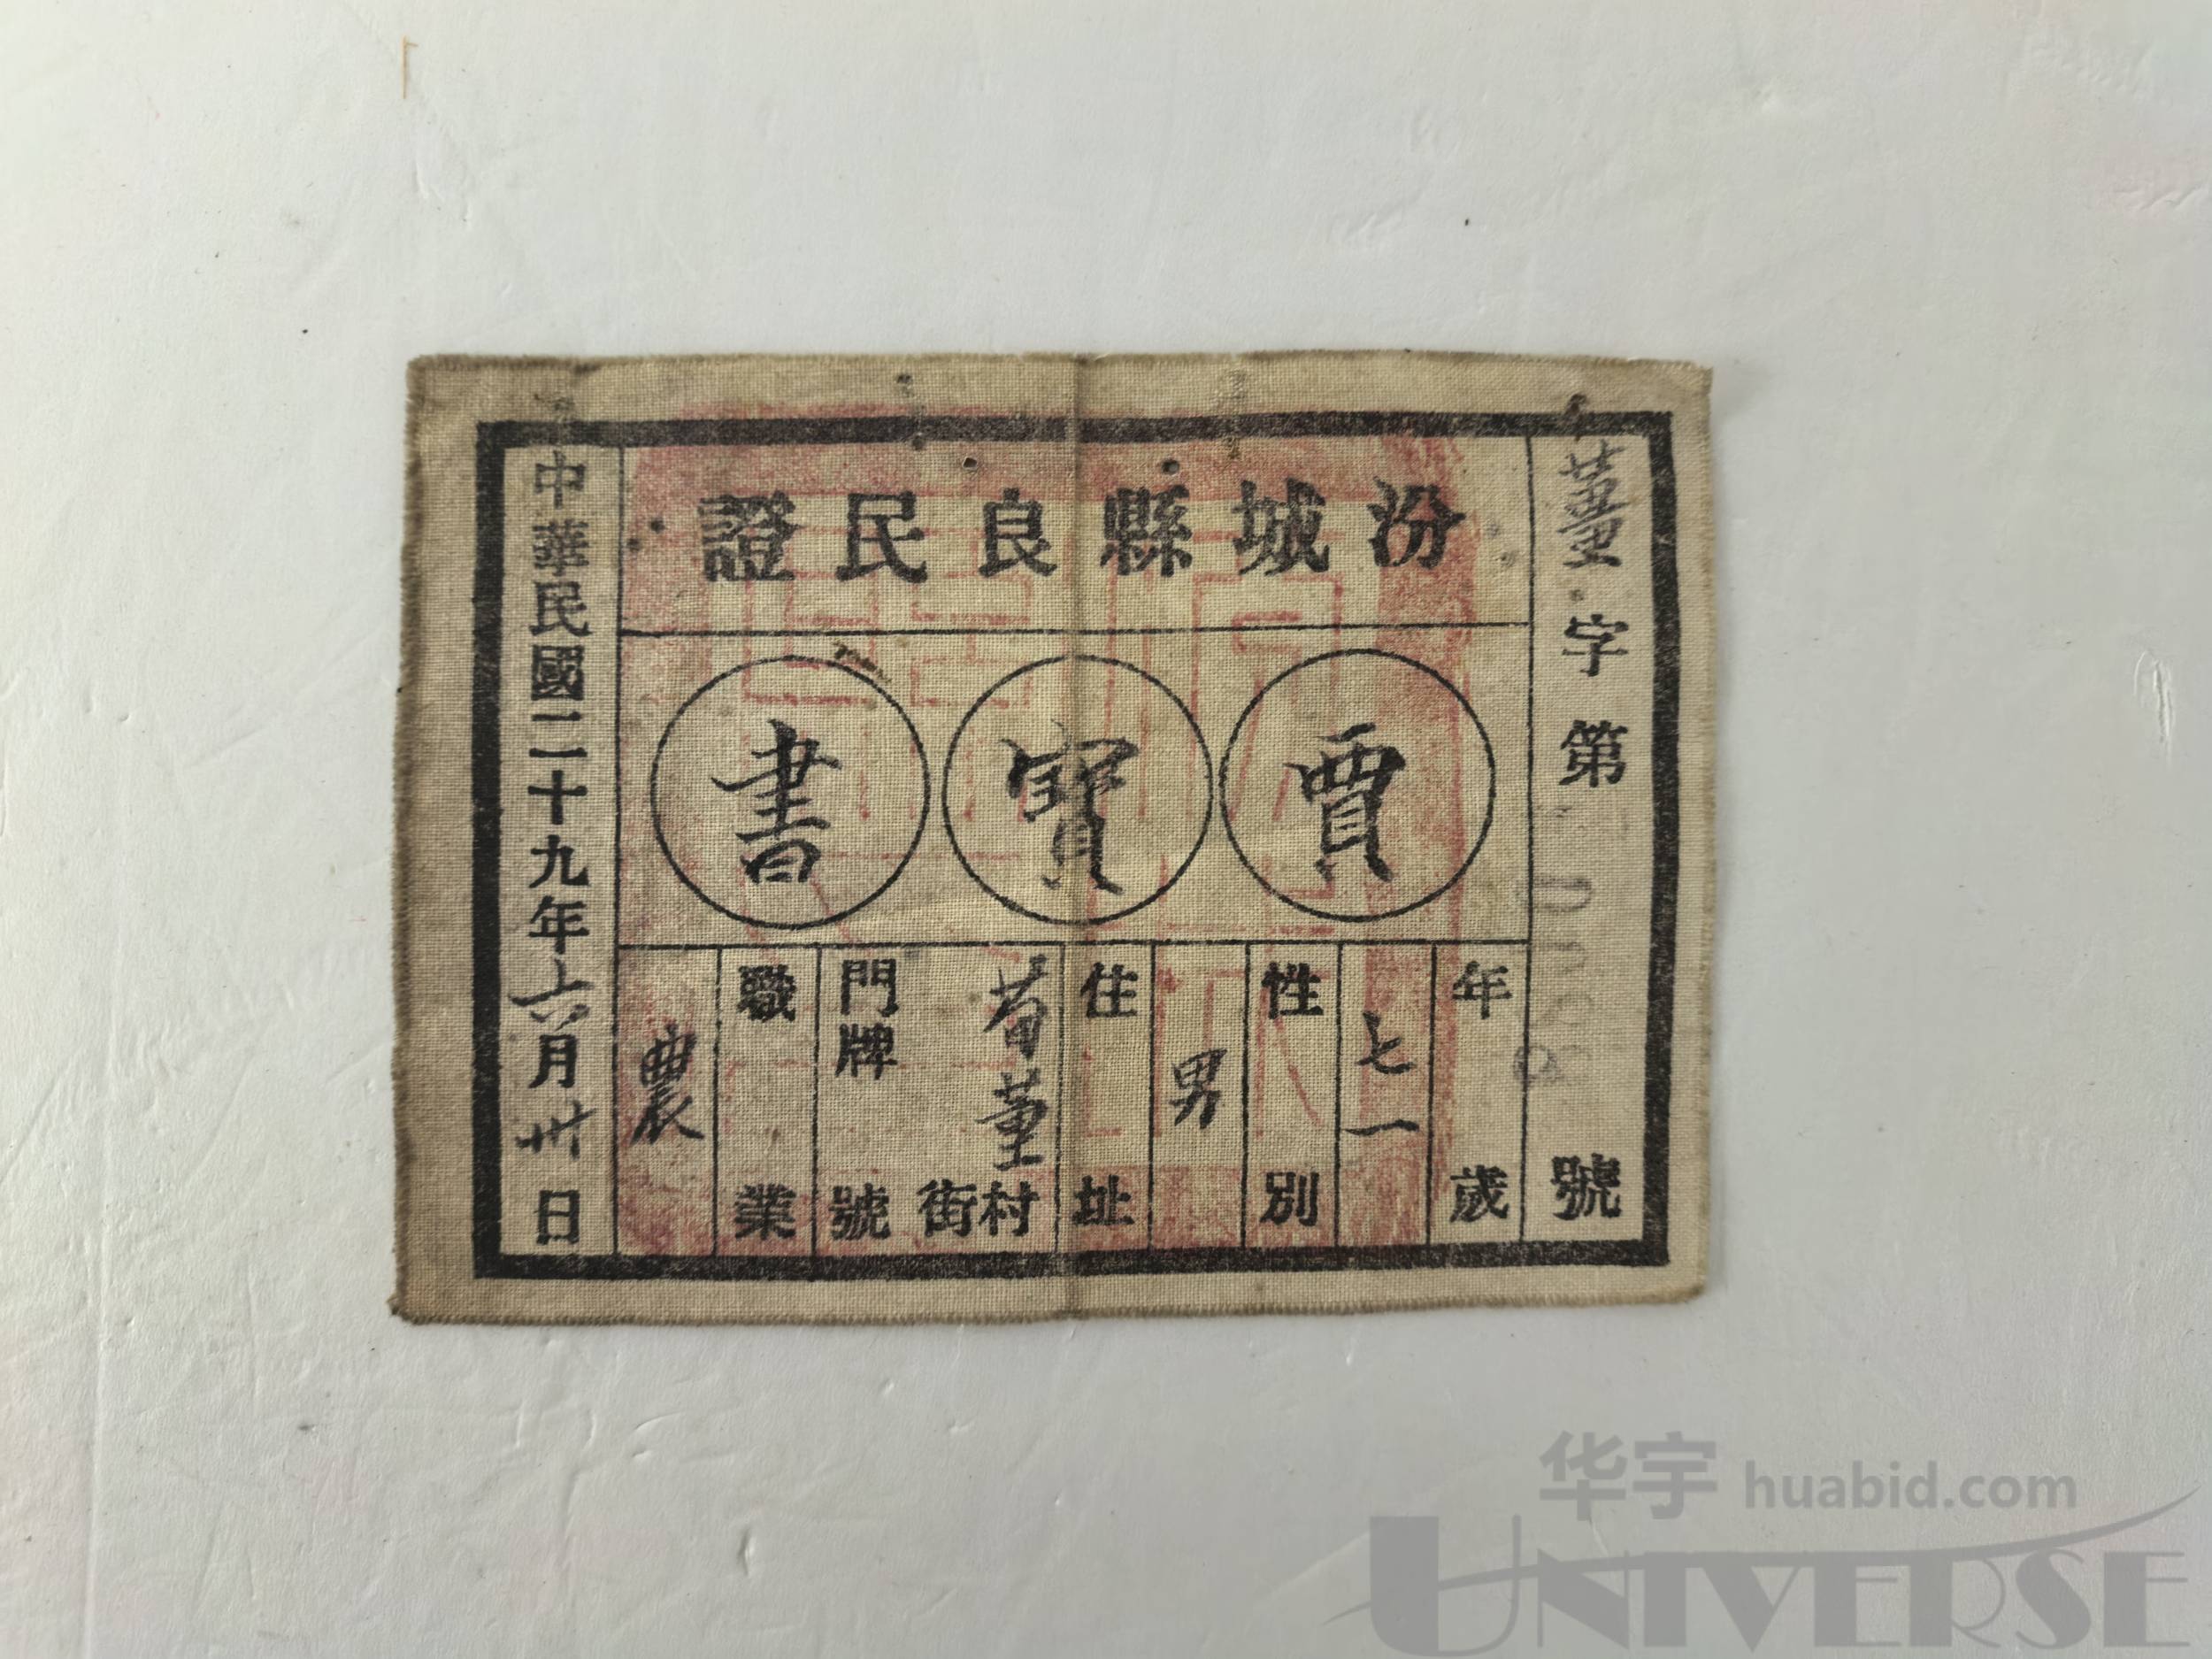 董字第 號
汾城縣良民證
賈寶書
年歲
七一
性別
男
住址
董村
街
門牌號
職業
農
中華民國二十九年六月卅日
华宇 huabid.com
UNIVERSE